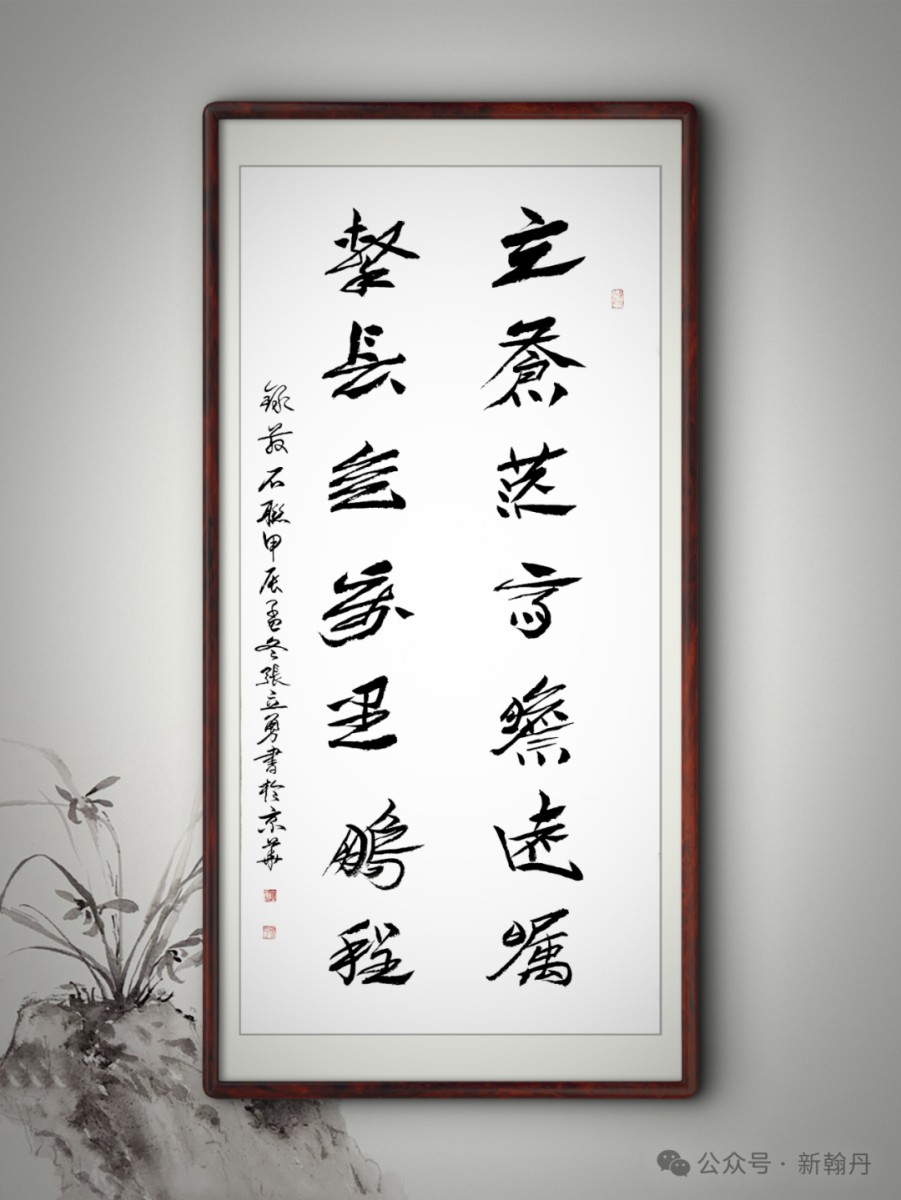 立蒼茫高瞻遠矚
擊長空萬里鵬程
録石聯甲辰孟冬張立勇書於京華
公众号·新翰丹